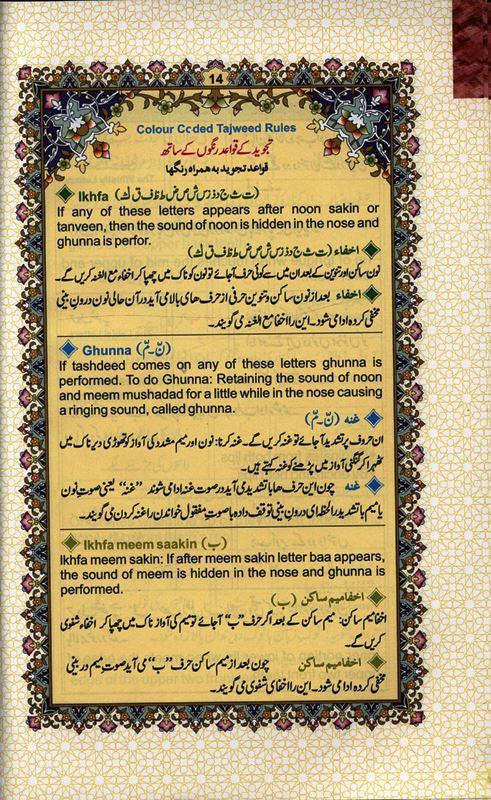 14
Colour Coded Tajweed Rules
تجوید کے قواعد رنگوں کے ساتھ
قواعد تجوید به همراه رنگها
Ikhfa (ت ث ج د ذ ز س ش ص ض ط ظ ف ق ک)
If any of these letters appears after noon sakin or
tanveen, then the sound of noon is hidden in the nose and
ghunna is perfor.
اخفاء (ت ث ج د ذ ز س ش ص ض ط ظ ف ق ک)
نون ساکن اور تنوین کے بعد ان میں سے کوئی حرف آجائے تو نون کو ناک میں چھپا کر اخفاء مع الغنہ کریں گے۔
اخفاء بعد از نون ساکن وتنوین حرفی از حرف های بالا می آید در آن حالی نون درون بینی
مخفی کرده ادا می شود۔ این را اخفا مع الغنه می گویند۔
Ghunna (نّ۔مّ)
If tashdeed comes on any of these letters ghunna is
performed. To do Ghunna: Retaining the sound of noon
and meem mushadad for a little while in the nose causing
a ringing sound, called ghunna.
غنہ (نّ۔مّ)
ان حروف پر تشدید آجائے تو غنہ کریں گے۔ غنہ کرنا: نون اور میم مشدد کی آواز کو تھوڑی دیر ناک میں
ٹھہرا کر گنگنی آواز میں پڑھنے کو غنہ کہتے ہیں۔
غنه چون این حرف ها با تشدید می آید در صورت غنه ادا می شوند "غنه" یعنی صوت نون
یا میم با تشدید را لحظه ای درون بینی توقف داده با صوت مقلول خواندن را غنه کردن می گویند۔
Ikhfa meem saakin (ب)
Ikhfa meem sakin: If after meem sakin letter baa appears,
the sound of meem is hidden in the nose and ghunna is
performed.
اخفا میم ساکن (ب)
اخفا میم ساکن: میم ساکن کے بعد اگر حرف "ب" آجائے تو میم کی آواز ناک میں چھپا کر اخفاء شفوی
کریں گے۔
اخفا میم ساکن چون بعد از میم ساکن حرف "ب" می آید صوت میم در بینی
مخفی کرده ادا می شود۔ این را اخفای شفوی می گویند۔